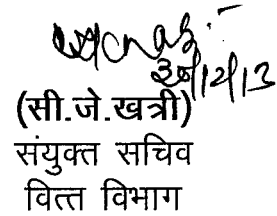 30/12/13
(सी.जे.खत्री)
संयुक्त सचिव
वित्त विभाग